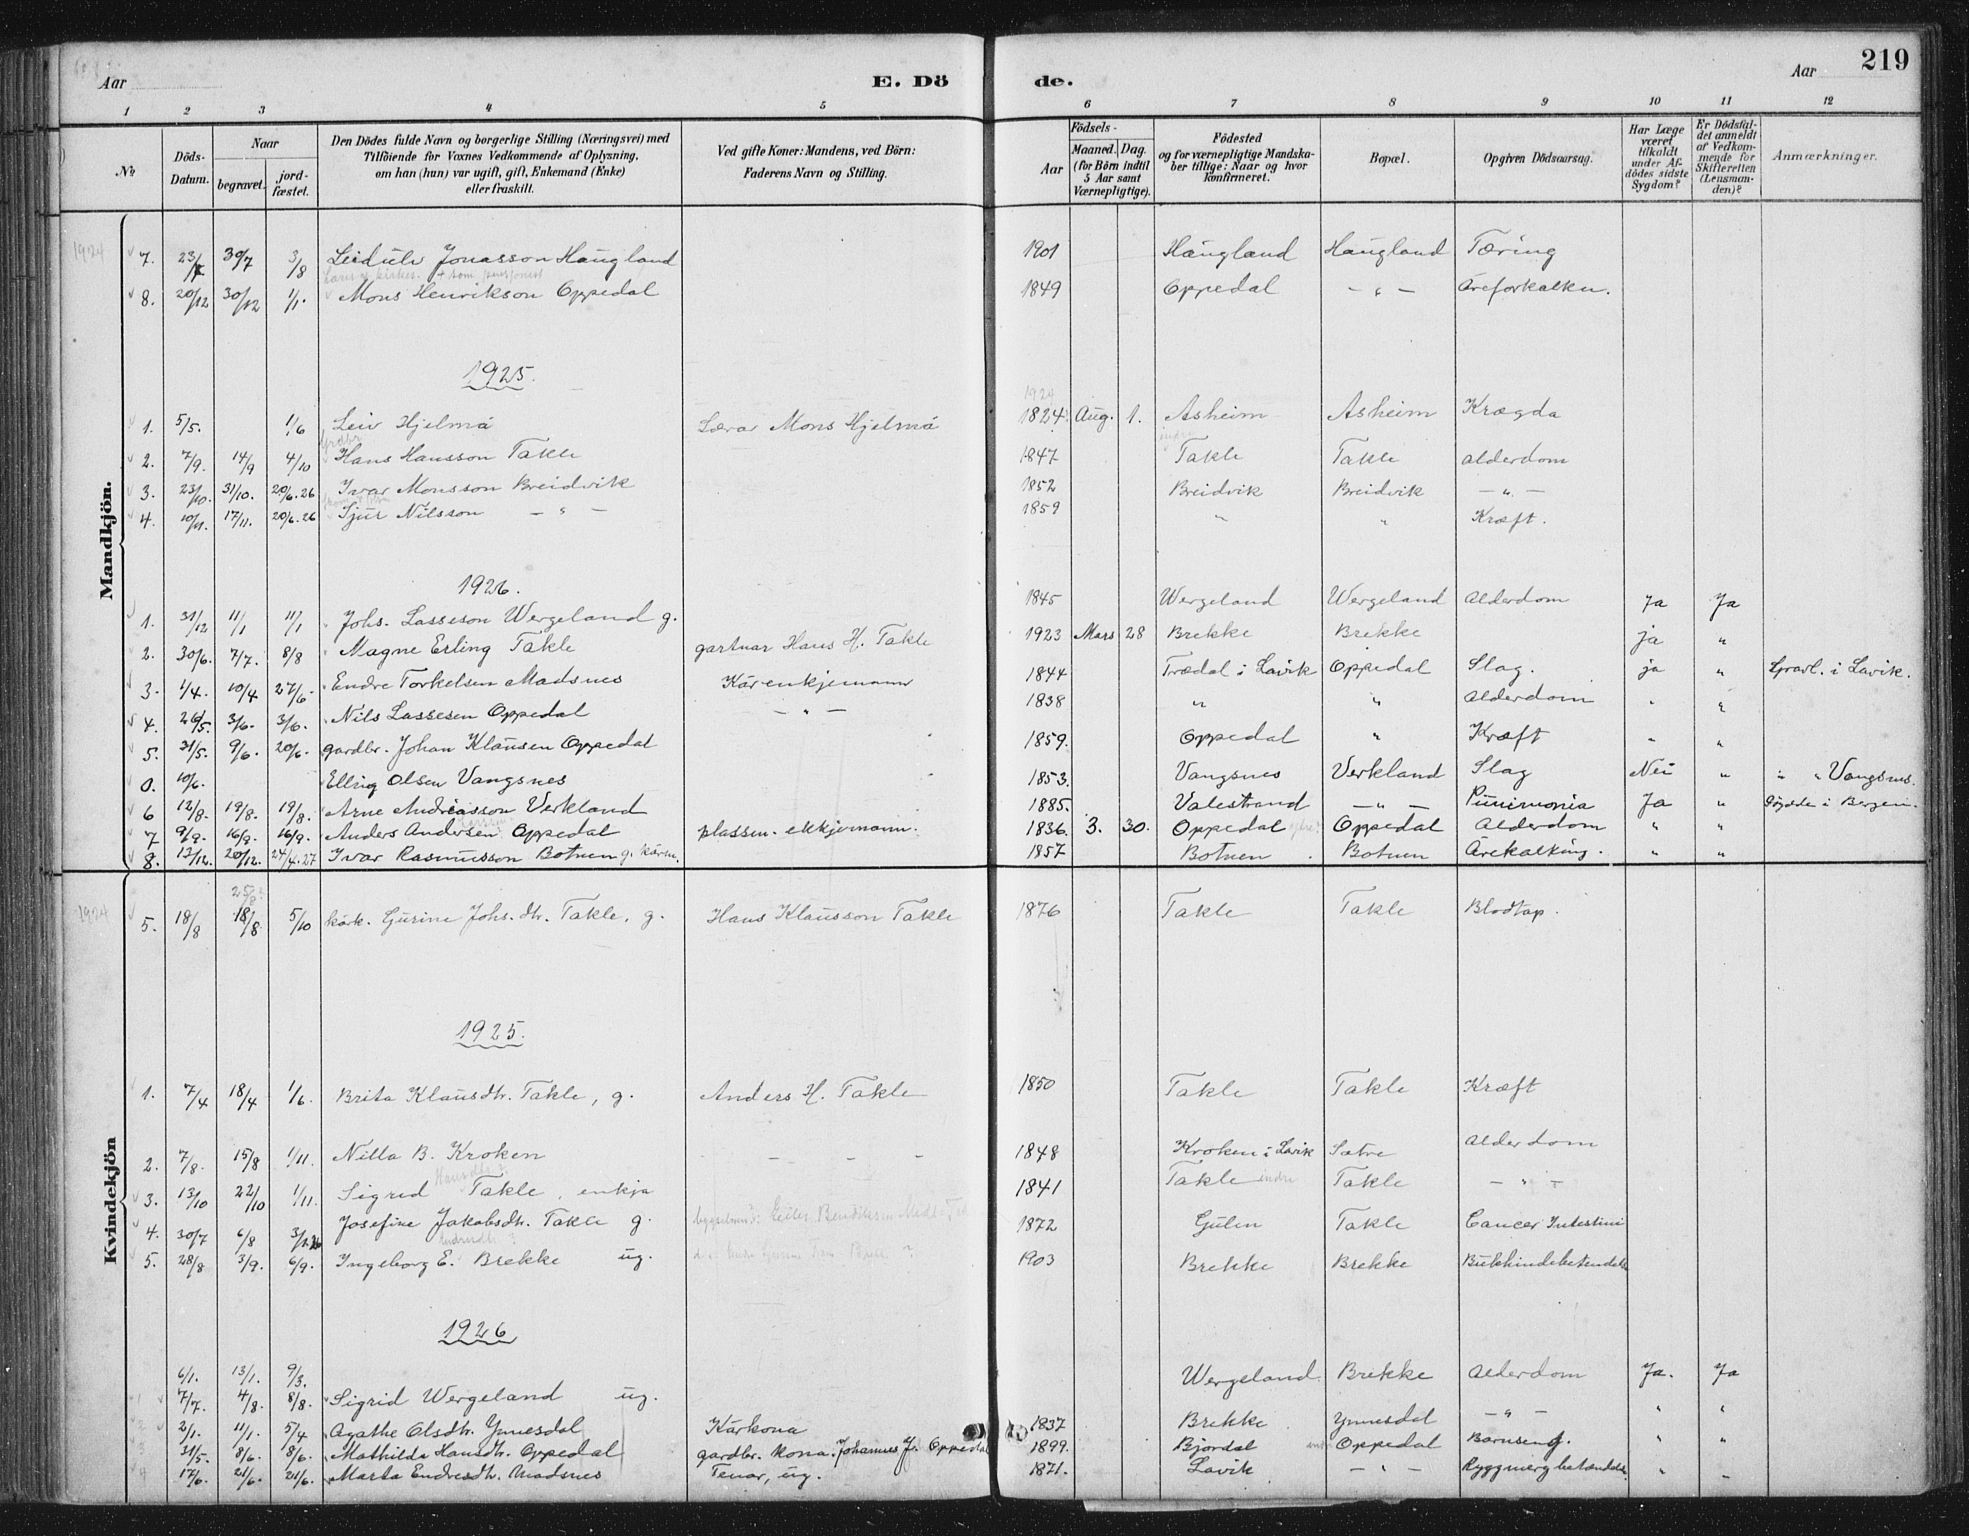 Aar E. Dö de. Aar 219
1 2 3 4 5 6 7 8 9 10 11 12
No
Döds-Datum.
Naar
begravet.
jord-fæstet.
Den Dödes fulde Navn og borgerlige Stilling (Næringsvei) med
Tilföiende for Voxnes Vedkommende af Oplysning,
om han (hun) var ugift, gift, Enkemand (Enke)
eller fraskilt.
Ved gifte Koner: Mandens, ved Börn:
Faderens Navn og Stilling.
Födsels-
Aar
Maaned. Dag.
(for Börn indtil
5 Aar samt
Værnepligtige).
Födested
og for værnepligtige Mandska-
ber tillige: Naar og hvor
konfirmeret.
Bopæl.
Opgiven Dödsaarsag.
Har Læge
været
tilkaldt
under Af-
dödes sidste
Sygdom?
Er Dödsfal-
det anmeldt
af Vedkom-
mende for
Skifteretten
(Lensman-
den)?
Anmærkninger.
Mandkjön.
1924 7. 23/7 30/7 3/8 Leidulv Jonasson Haugland 1901 Haugland Haugland Tæring
8. 20/12 30/12 1/1. Mons Henrikson Oppedal 1849 Oppedal — " — Åreforkalkn.
1925.
1924
1. 5/5. 1/6 Leiv Hjelmå Lærar Mons Hjelmå 1824 Aug. 1. Asheim Asheim Krægda
2. 7/9. 14/9 4/10 Hans Hansson Takle 1847 indre Takle Takle Alderdom
3. 23/10. 31/10. 20/6.26 Ivar Monsson Breidvik 1852 Breidvik Breidvik — " —
4. 10/11. 17/11. 20/6.26 Sjur Nilsson — " — 1859 " " Kræft.
1926.
1. 31/12 11/1 11/1 Johs. Lasseson Wergeland g. 1845 Wergeland Wergeland Alderdom Ja Ja
2. 30/6. 7/7. 8/8 Magne Erling Takle gartnar Hans H. Takle 1923 Mars 28 Brekke Brekke ja "
3. 1/4. 10/4 27/6. Endre Torkelsen Madsnes Kårenkjemann 1844 Trædal i Lavik Oppedal Slag. ja " Gravl. i Lavik.
4. 26/5. 3/6. 3/6. Nils Lassesen Oppedal — " — 1838 " " Alderdom " "
5. 31/5. 9/6. 20/6. gardbr. Johan Klausen Oppedal 1859. Oppedal " Kræft " "
0. 10/6. Elling Olsen Vangsnes 1853. Vangsnes Verkland Slag Nei " " " Vangsnes.
6 12/8. 19/8. 19/8. Arne Andreasson Verkland 1885. Valestrand — " — Punimonia Ja " Döydde i Bergen.
7 9/9. 16/9. 16/9. Anders Andersen Oppedal plassm. ekkjemann. 1836. 3. 30. Oppedal Oppedal Alderdom " "
8. 13/12. 20/12. 24/4.27 Ivar Rasmusson Botnen g. kårm. 1857 Botnen Botnen Årekalking. " "
Kvindekjön
1924 25/8?
5. 18/8 18/8 5/10 kårk. Gurine Johs.dtr. Takle, g. Hans Klausson Takle 1876 Takle Takle Blodtap.
1925.
1. 7/4 18/4 1/6. Brita Klausdtr. Takle, g. Anders H. Takle 1850 Takle Takle Kræft
2. 7/8. 15/8 1/11. Nilla B. Kroken — — — 1848 Kroken i Lavik Sætre Alderdom
3. 13/10 22/10 1/11. Sigrid Takle, enkja 1841 Takle indre Takle — " —
4. 30/7 6/8 Josefine Jakobsdtr. Takle g. 1872 Gulen Takle Cancer Intestini
5. 28/8 3/9. 6/9. Ingeborg E. Brekke ug. 1903 Brekke Brekke Bukhindebetendelse
1926
6/1. 13/1. 9/3. Wergeland Brekke Alderdom Ja. Ja
1 7/7. 4/8. 8/8. Sigrid Wergeland ug.
2/1. 11/1. 5/4 Agathe Olsdtr. Ynnesdal Kårkona 1837 Brekke Ynnesdal — " — " "
31/5. 8/6. 8/6. Mathilde Hansdtr. Oppedal gardbr. kona. Johannes J. Oppedal 1899. Bjordal Oppedal Barnseng. " "
4 17/6. 21/6. 21/6. Marta Endresdtr. Madsnes Tenar, ug. 1871. Lavik — " — Ryggmergbetændelse "